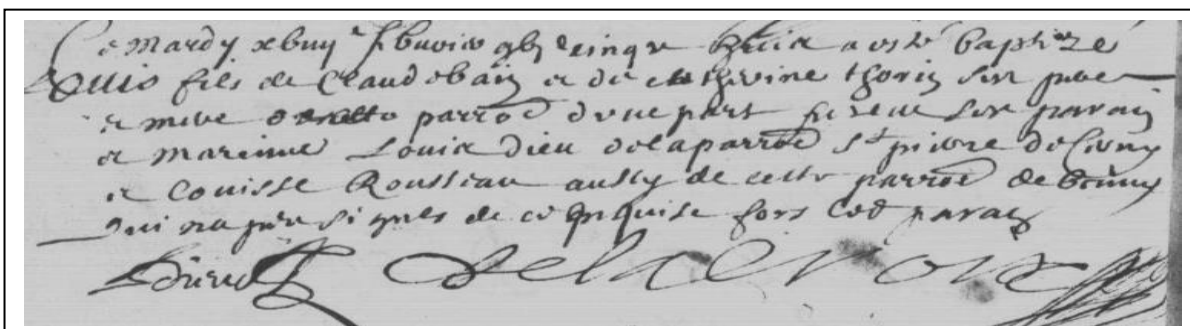 Ce Mardy xbuije febvrier gbj cinqte huict a esté baptizé
Louis fils de Claude bain et de catherine thorin son pere
et mere de cette parroe d'une part furent son parain
et maraine Louis dieu de la parroe St pierre de Civry
et Louisse Rousseau aussy de cette parroe de
qui n'a peu signer de ce enquise fors led parain
LDieu Delacroix